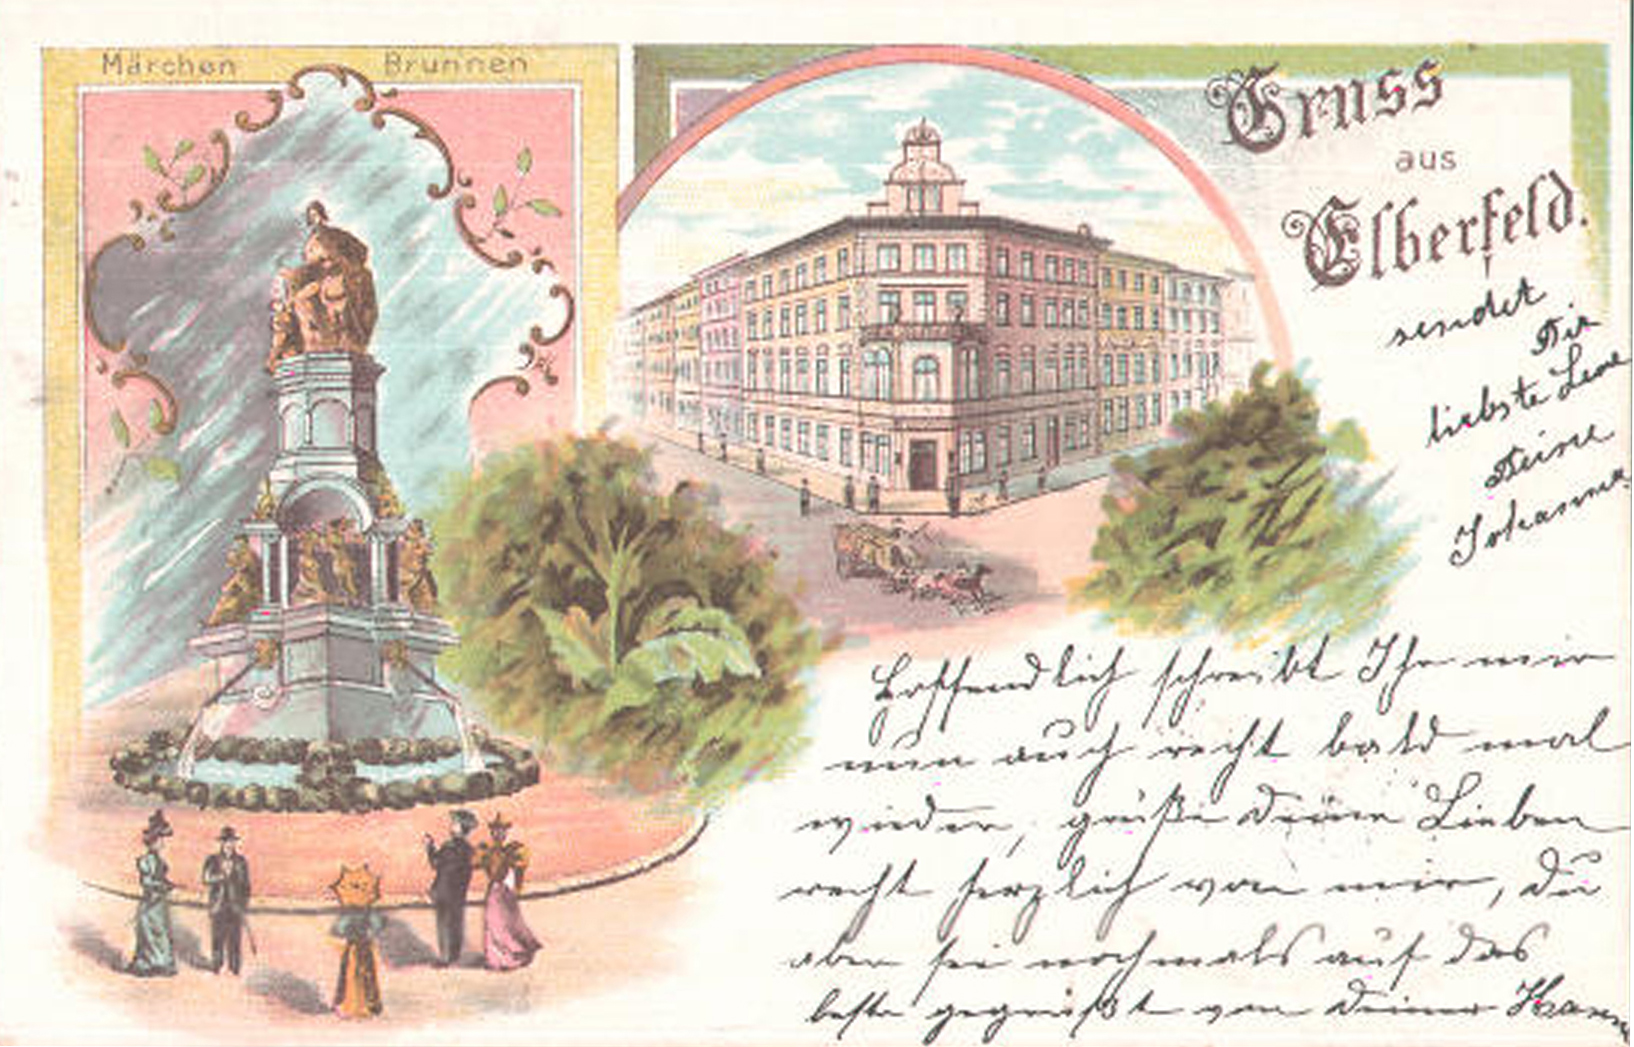 Märchen Brunnen
Gruss
aus
Elberfeld.
sendet
Dir
liebste Lene
Deine
Johanna
Hoffendlich schreibt Ihr mir
nun auch recht bald mal
wieder, grüße Deine Lieben
recht herzlich von mir, Du
aber sei nochmals auf das
beste gegrüßt von Deiner